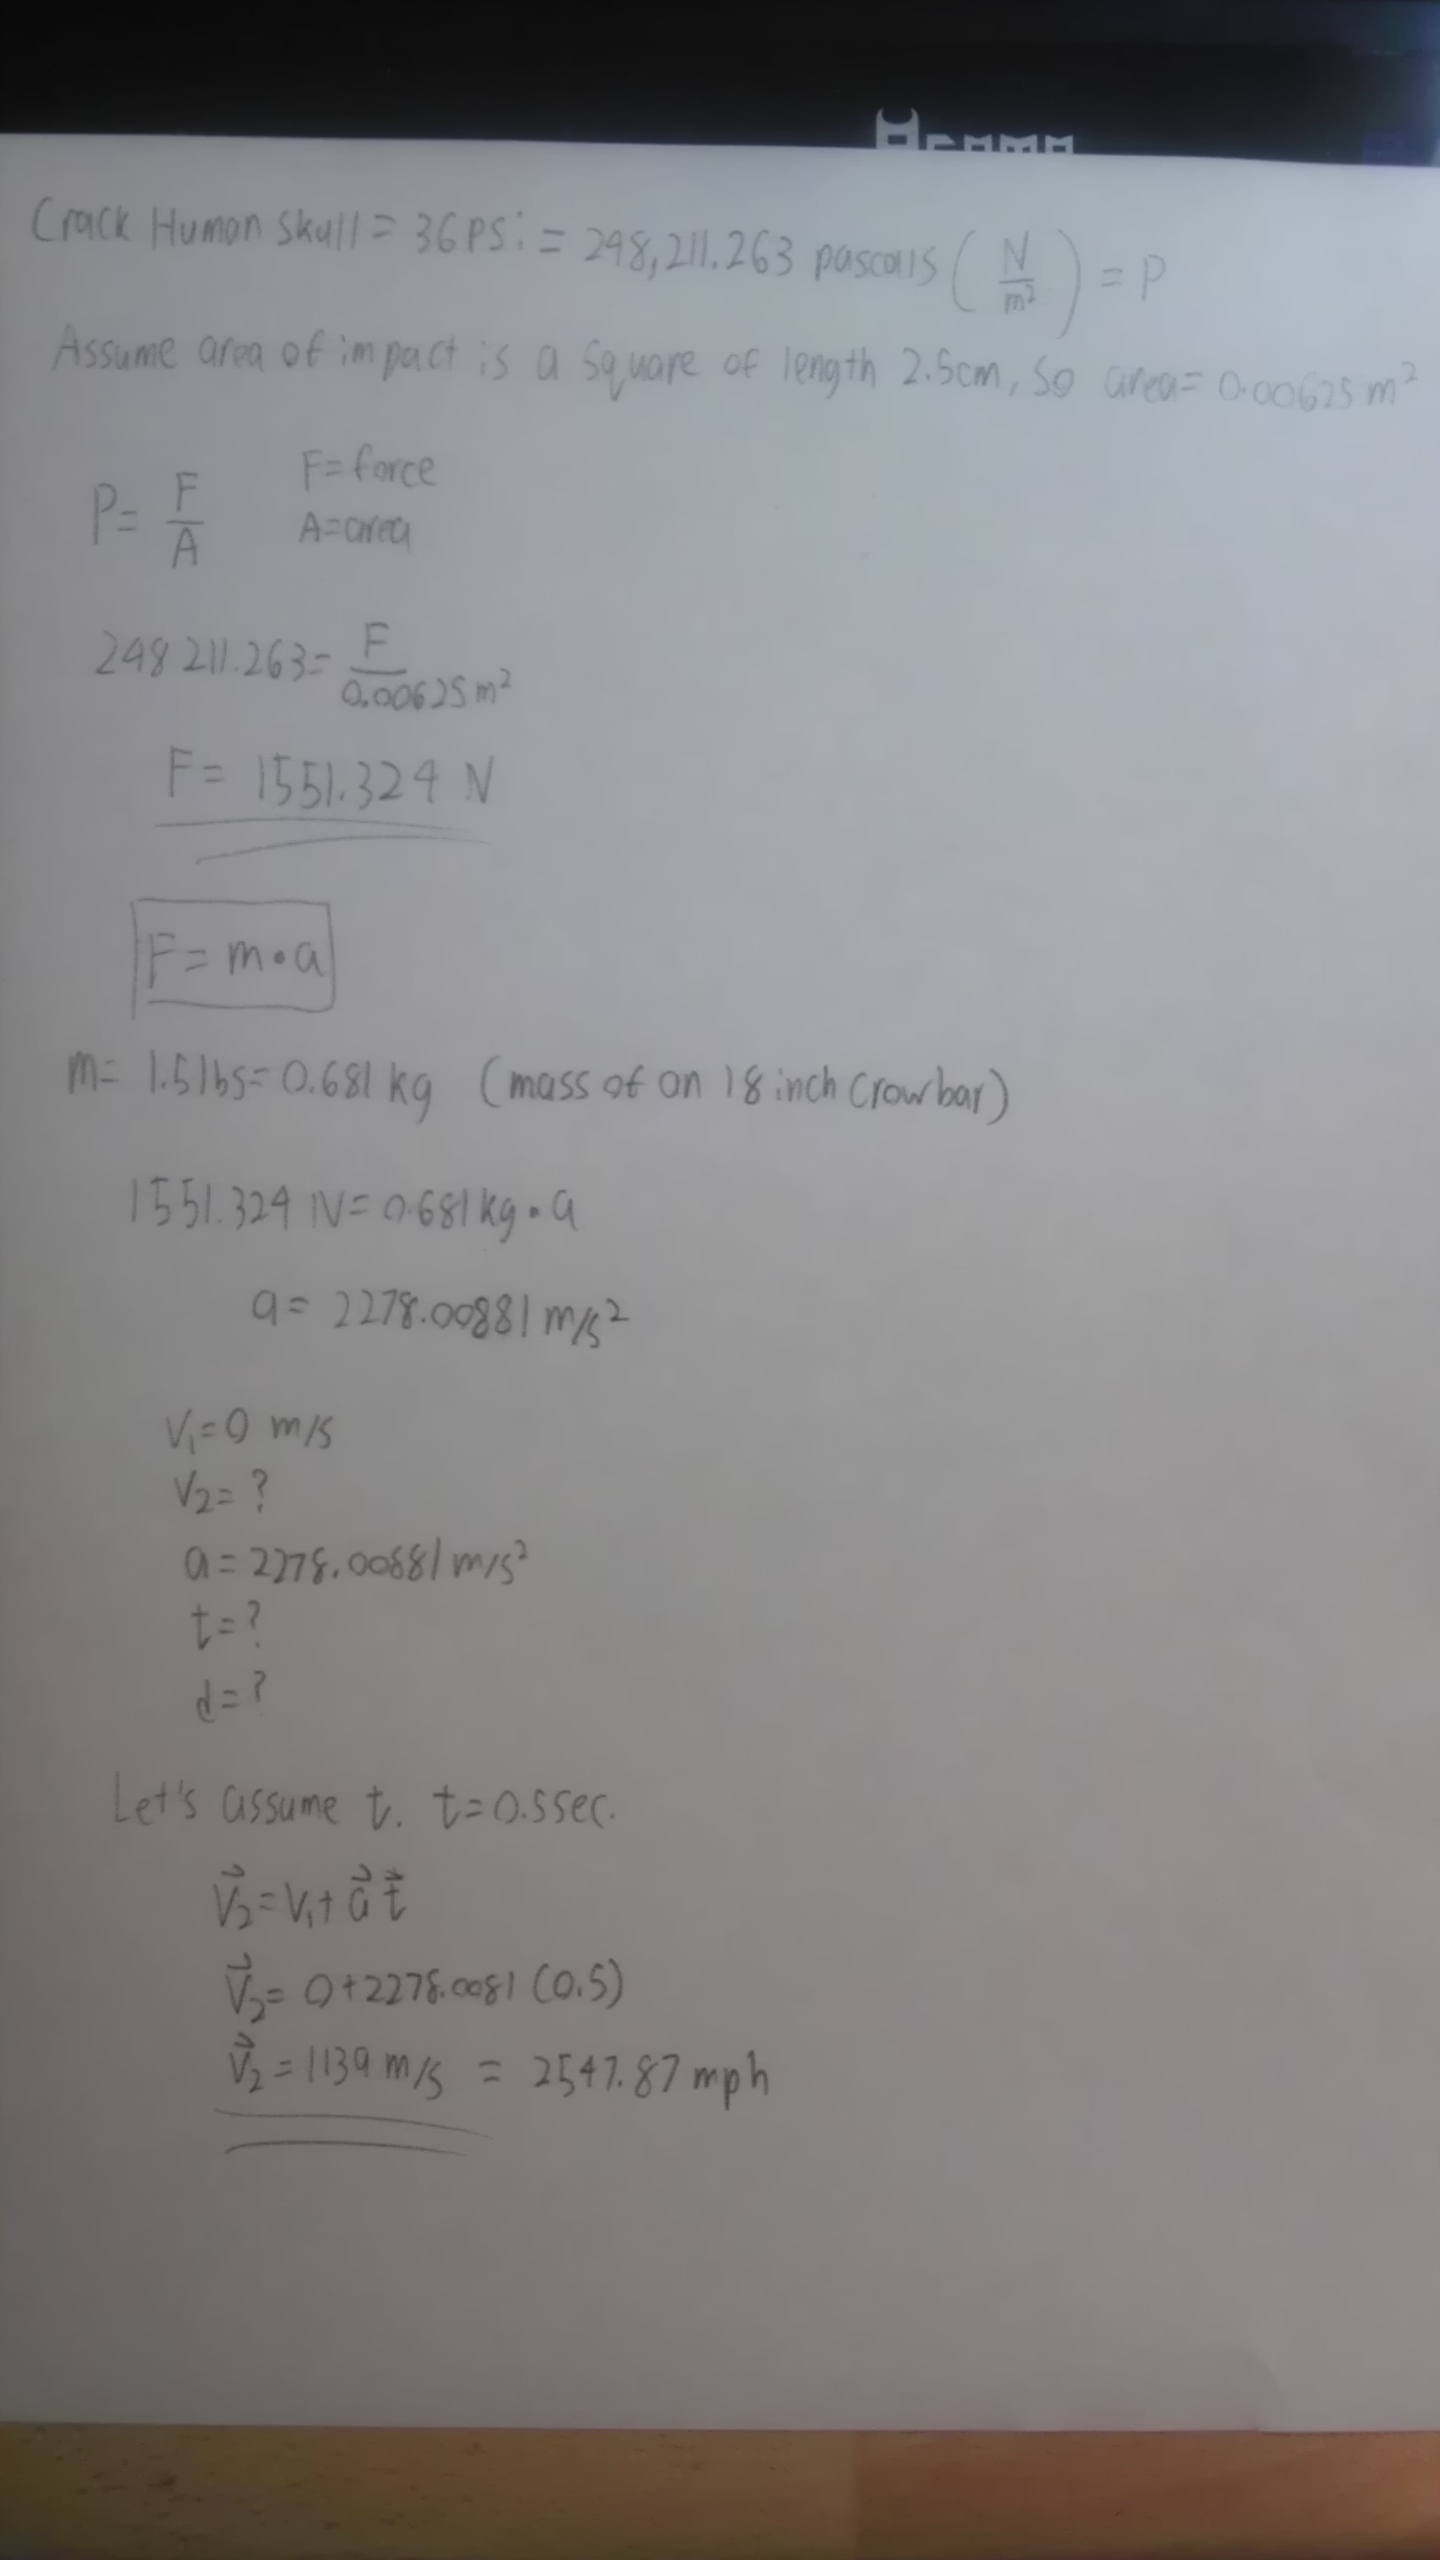 Crack Human Skull = 36 PSi = 248,211.263 pascals (N/m²) = P
Assume area of impact is a square of length 2.5cm, so area= 0.00625 m²
P= F/A
F= force
A=area
248 211.263= F/0.00625 m²
F= 1551.324 N
F= m•a
m= 1.5lbs= 0.681 kg (mass of an 18 inch Crowbar)
1551.324 N= 0.681 kg • a
a= 2278.00881 m/s²
V₁=0 m/s
V₂= ?
a = 2278.00881 m/s²
t=?
d=?
Let's assume t. t=0.5sec.
V⃗₂=V₁+a⃗ t⃗
V⃗₂= 0+2278.0081 (0.5)
V⃗₂=1139 m/s = 2547.87 mph